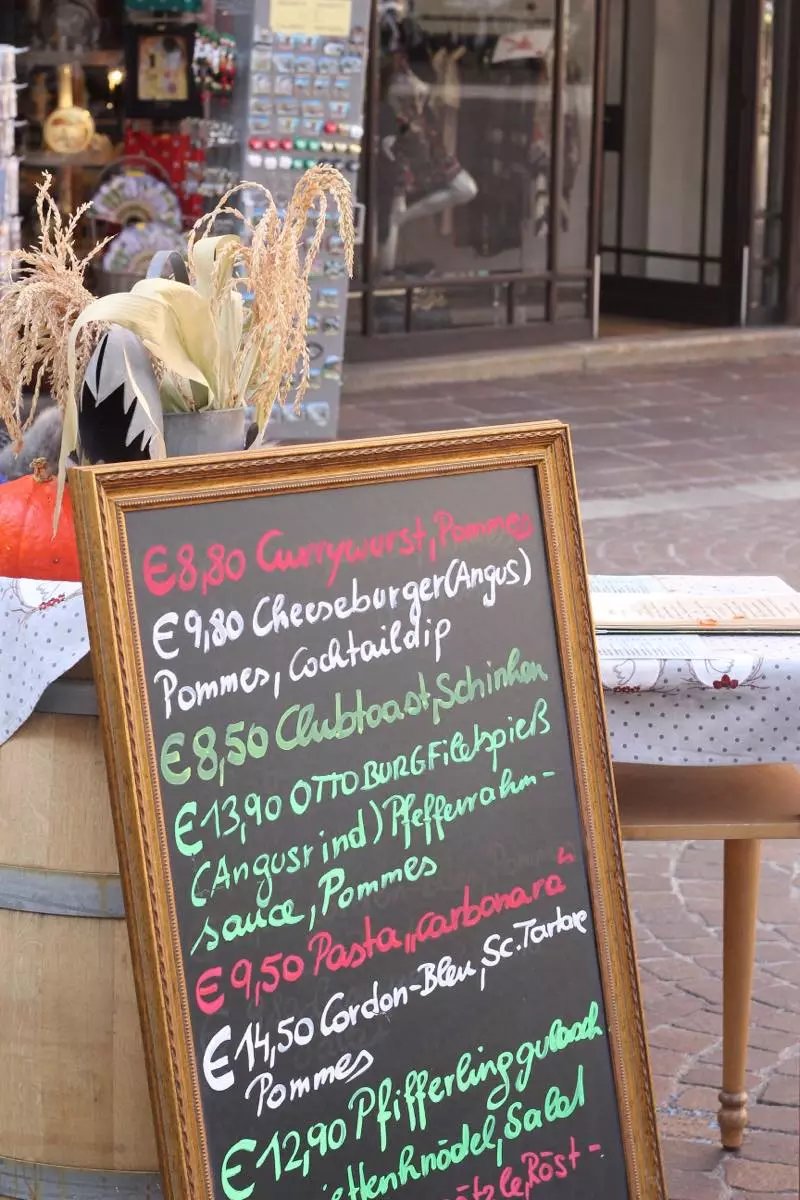 €8,80 Currywurst, Pommes
€9,80 Cheeseburger(Angus)
Pommes, Cocktaildip
€8,50 Clubtoast, Schinken
€13,90 OTTOBURG Filetspieß
(Angusrind) Pfefferrahm-
sauce, Pommes
€9,50 Pasta „carbonara“
€14,50 Cordon-Bleu, Sc. Tartare
Pommes
€12,90 Pfifferlinggulasch
Salat
Röst-